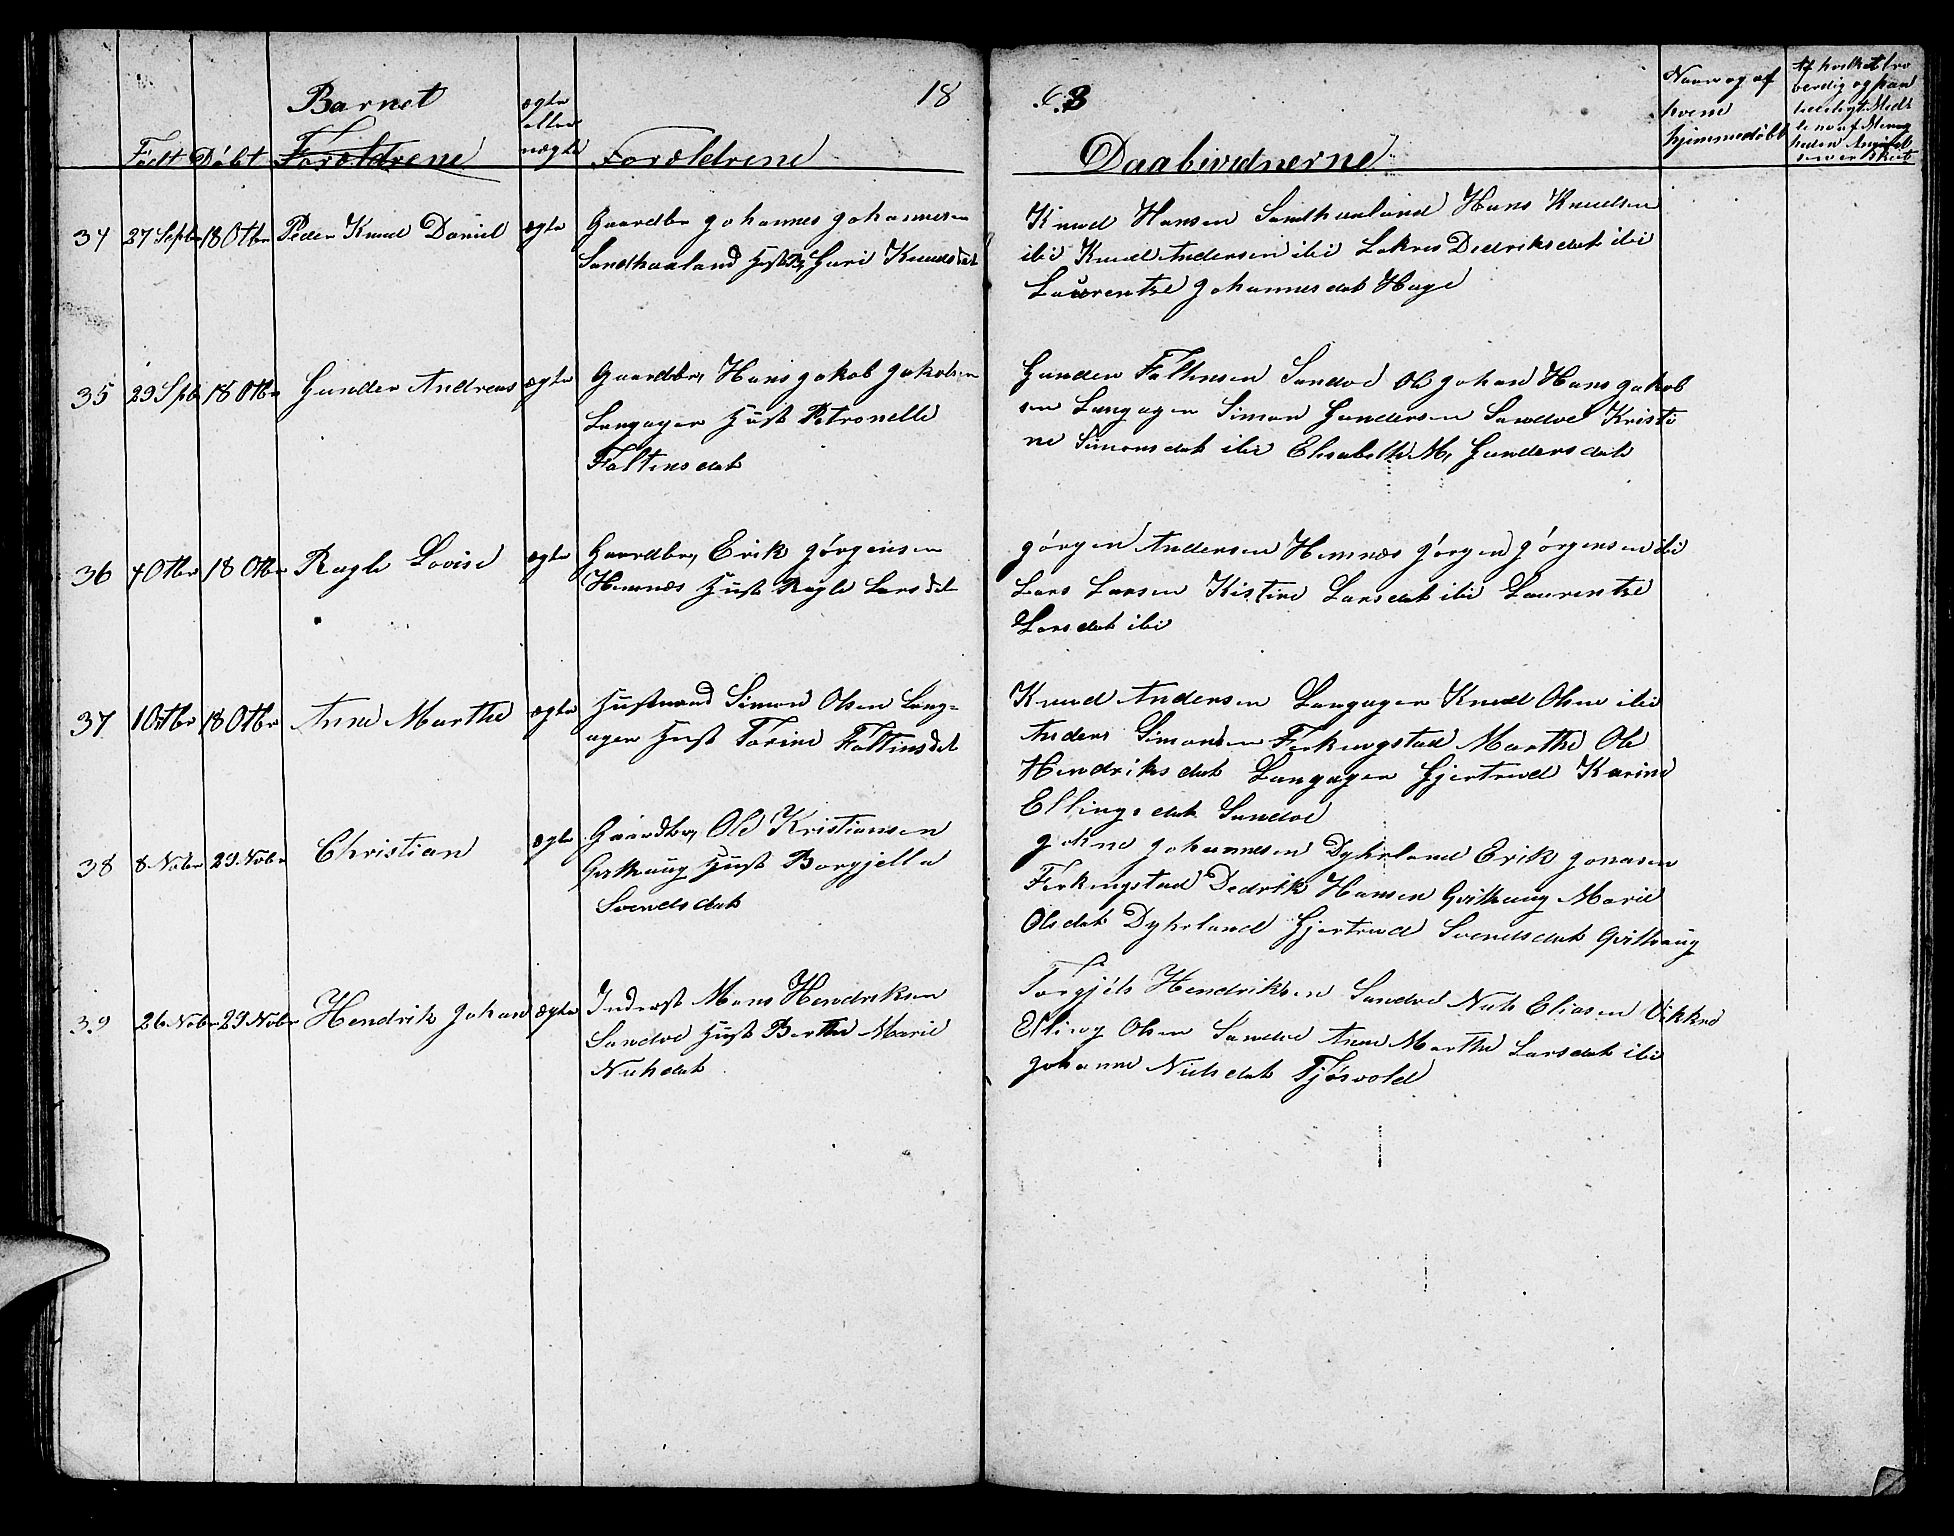 Barnet
ægte eller uægte
18 63
Født Døbt Forældrene Forældrene
Daabvidnerne
Naar og af hvem hjemmedøbt
Af hvilket tro
34 27 Septbr 18 Otbr Peder Knud Daniel ægte Gaardbr Johannes Johannesen
Sandhaaland Hust Guri Knudsdat
Knud Hansen Sandhaaland Hans Knudsen
ibi Knud Andersen ibi Lokres Dedriksdat ibi
Laurentze Johannesdat Hage
35 29 Sptb 18 Otbr Gunder Andreas ægte Gaardbr, Hans Jakob Jakobsen
Langager Hust Petronelle
Faltinsdat
Gunder Faltinsen Sandve Ole Johan Hans Jakob
sen Langager Simon Gundersen Sandve Kristi
ne Simonsdat ibi Elisabeth M, Gundersdat
36 4 Otbr 18 Otbr Ragle Lovise ægte Gaardbr, Erik Jørgensen
Hemnæs Hust Ragle Larsdat
Jørgen Andersen Hemnæs Jørgen Jørgensen ibi
Lars Larsen Kistine Larsdat ibi Laurentze
Larsdat ibi
37 1 Otbr 18 Otbr Anne Marthe ægte Husmand Simon Olsen Lang-
ager Hust Torine Faltinsdat
Knud Andersen Langager Knud Olsen ibi
Anders Simonsen Ferkingstad Marthe Ole
Hendriksdat Langager Gjertrud Karine
Ellingsdat Sandve
38 8 Nobr 29 Nobr Christian ægte Gaardbr, Ole Kristiansen
Qvilhaug Hust Borgjella
Svendsdat
Johne Johannesen Dyhrland Erik Jonasen
Ferkingstad Dedrik Hansen Qvilhaug Marie
Olsdat Dyhrland Gjertrud Svendsdat Qvilhaug
39 26 Nobr 29 Nobr Hendrik Johan ægte Inderst Mons Hendriksen
Sandve Hust Berthe Marie
Nielsdat
Torgjels Hendriksen Sandve Niels Eliasen Vikene
Elling Olsen Sandve Anne Marthe Larsdat ibi
Johanne Nielsdat Tjøsvold